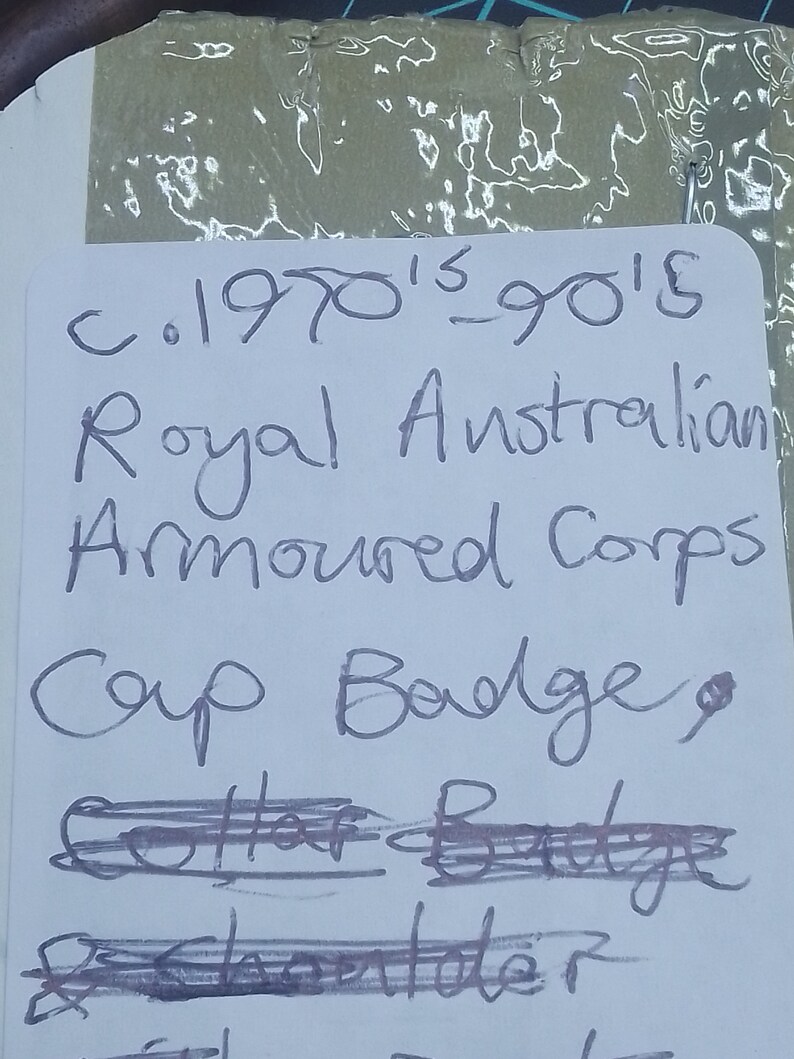 c.1970's-90's
Royal Australian
Armoured Corps
Cap Badge,
Collar Badge
& Shoulder